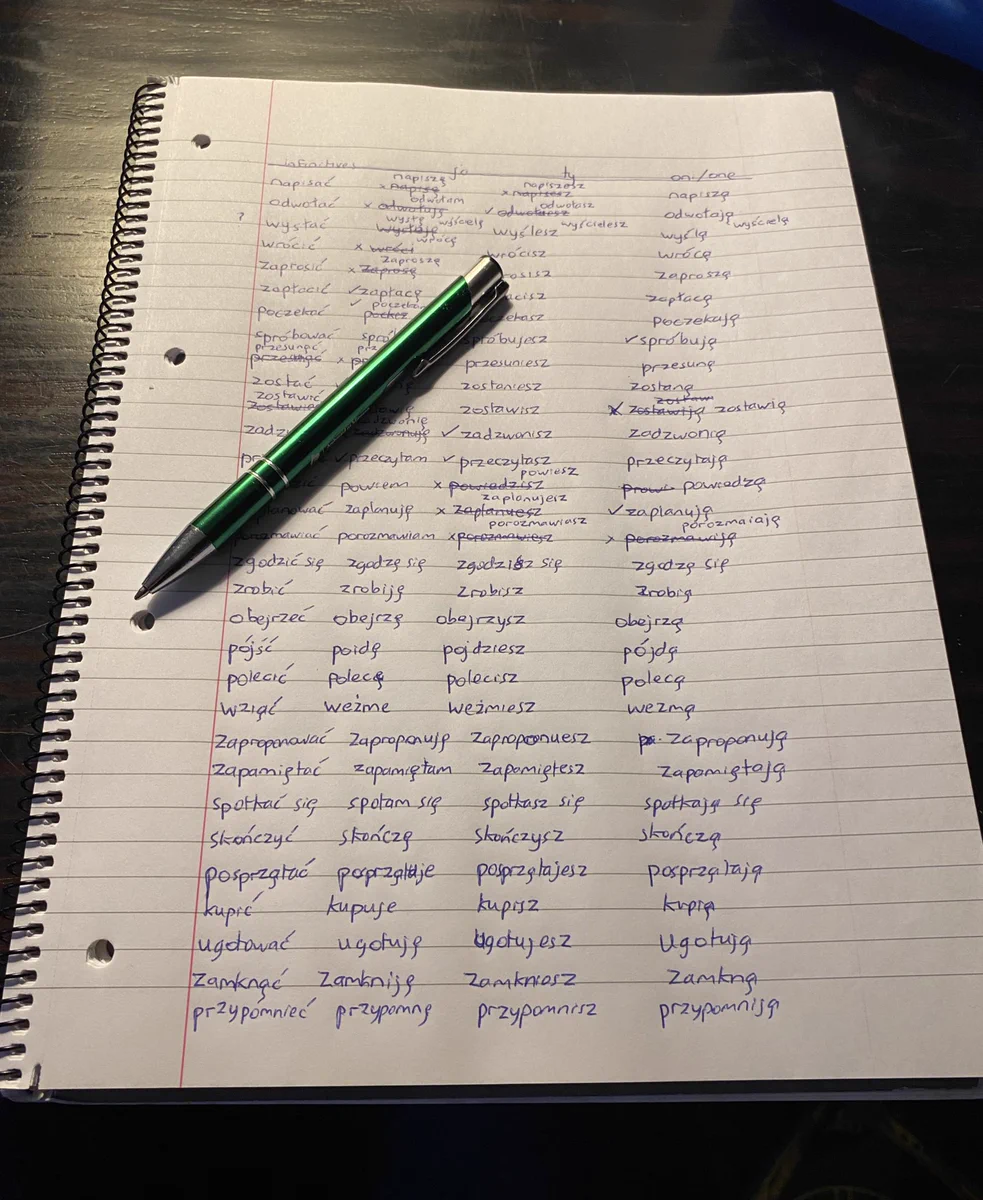 infinitives ja ty oni/one
napiszę napiszesz
napisać x napisę x napisesz napiszą
odwołam odwołasz
odwołać x odwołaję ✓ odwołuesz odwołają
wyślę wyścielę wyścielesz wyścielą
? wysłać wysłaję wyślesz wyślą
wrócę
wrócić x wróci wrócisz wrócą
zaproszę
zaprosić x zaprosę rosisz zaproszą
zapłacić ✓ zapłacę acisz zapłacą
✓ poczeka
poczekać poczekują
spróbować spró spróbujesz ✓ spróbują
przesunąć prz
przesunieszz przesuną
zostać zostaniesz zostaną
zostawić zostaw
zostawisz x zostawiją zostawią
zadz ✓ zadzwonisz zadzwonią
✓ przeczytam ✓ przeczytasz przeczytają
powiesz
powiem x powiedzisz powiedzą
zaplanujesz
zaplanuję x zaplanuesz ✓ zaplanują
porozmawiasz porozmaiają
porozmawiam x porozmawiesz x porozmawiją
zgodzić się zgodzę się zgodzisz się zgodzą się
zrobić zrobiję zrobisz zrobią
obejrzeć obejrzę obejrzysz obejrzą
pójść poidę pojdziesz pójdą
polecić polecę polecisz polecą
wziąć weżme weżmiesz wezmą
Zaproponować Zaproponuję Zaproponuesz Zaproponują
Zapamiętać zapamiętam Zapamiętesz Zapamiętają
spotkać się spotam się spotkasz się spotkają się
skończyć skończę skończysz skończą
posprzątać posprzątaje posprzątajesz posprzątają
kupić kupuje kupisz kupią
ugotować ugotuję Ugotujesz Ugotują
Zamknąć Zamkniję Zamkniesz Zamkną
przypomnieć przypomnę przypomnisz przypomniją